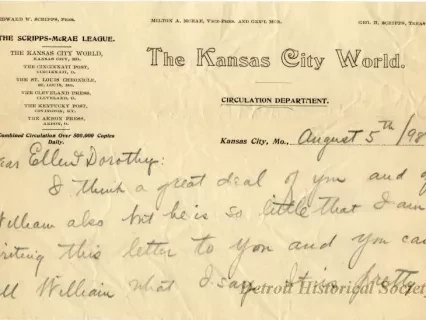 EDWARD W. SCRIPPS, PRES.
MILTON A. McRAE, VICE-PRES. AND GEN'L MGR.
GEO. H. SCRIPPS, TREAS
THE SCRIPPS-McRAE LEAGUE.
THE KANSAS CITY WORLD,
KANSAS CITY, MO.
THE CINCINNATI POST,
CINCINNATI, O.
THE ST. LOUIS CHRONICLE,
ST. LOUIS, MO.
THE CLEVELAND PRESS,
CLEVELAND, O.
THE KENTUCKY POST,
COVINGTON, KY.
THE AKRON PRESS,
AKRON, O.
Combined Circulation Over 300,000 Copies
Daily.
The Kansas City World.
CIRCULATION DEPARTMENT.
Kansas City, Mo., August 5th/98
ear Ellen & Dorothy:
I think a great deal of you and
William also but he is so little that I am
riting this letter to you and you can
ll William what I say. It is pretty
Detroit Historical Society